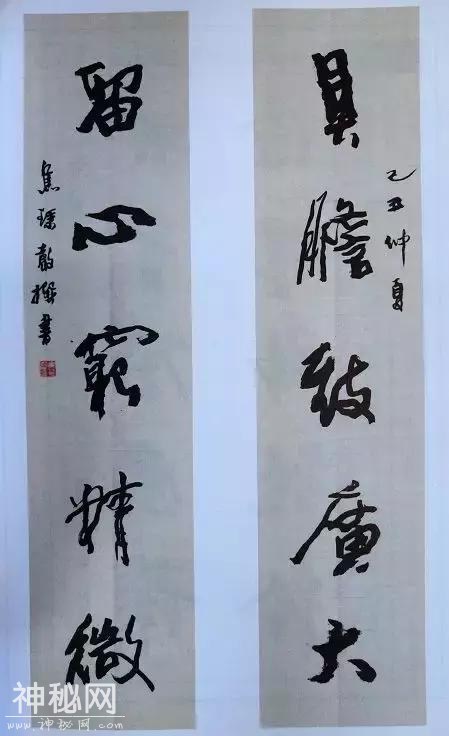 己丑仲夏
具膽致廣大
留心窮精微
焦撰書
神秘网
www.神秘网.com